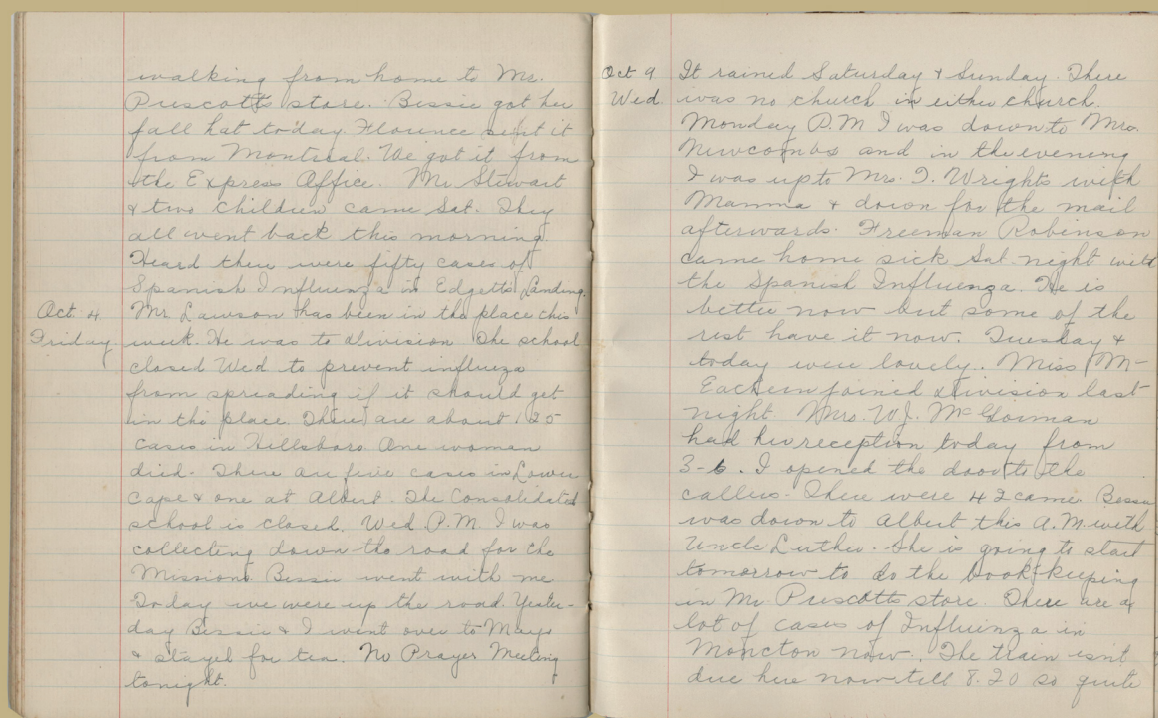 walking from home to Mr.
Prescotts store. Bessie got her
fall hat today. Florence sent it
from Montreal. We got it from
the Express Office. Mr. Stewart
& two children came Sat. They
all went back this morning.
Heard there were fifty cases of
Spanish Influenza in Edgetts Landing.
Oct. 4. Mr Lawson has been in the place this
Friday. week. He was to division. The school
closed Wed to prevent influenza
from spreading if it should get
in the place. There are about 125
cases in Hillsboro. One woman
died. There are five cases in Lower
Cape & one at Albert. The Consolidated
school is closed. Wed. P.M. I was
collecting down the road for the
Missions. Bessie went with me
Today we were up the road. Yester-
day Bessie & I went over to Mays
& stayed for tea. No Prayer Meeting
tonight.
Oct 9 It rained Saturday & Sunday. There
Wed. was no church in either church.
Monday P.M I was down to Mrs.
Newcombs and in the evening
I was up to Mrs. I. Wrights with
Mamma & down for the mail
afterwards. Freeman Robinson
came home sick Sat. night with
the Spanish Influenza. He is
better now but some of the
rest have it now. Tuesday &
today were lovely. Miss Mc-
Eachern joined division last
night. Mrs. W.J. McGorman
had her reception today from
3-6. I opened the door to the
callers. There were 42 came. Bessie
was down to Albert this A.M. with
Uncle Luther. She is going to start
tomorrow to do the bookkeeping
in Mr Prescotts store. There are a
lot of cases of Influenza in
Moncton now. The train isn't
due here now till 8.20 so quite